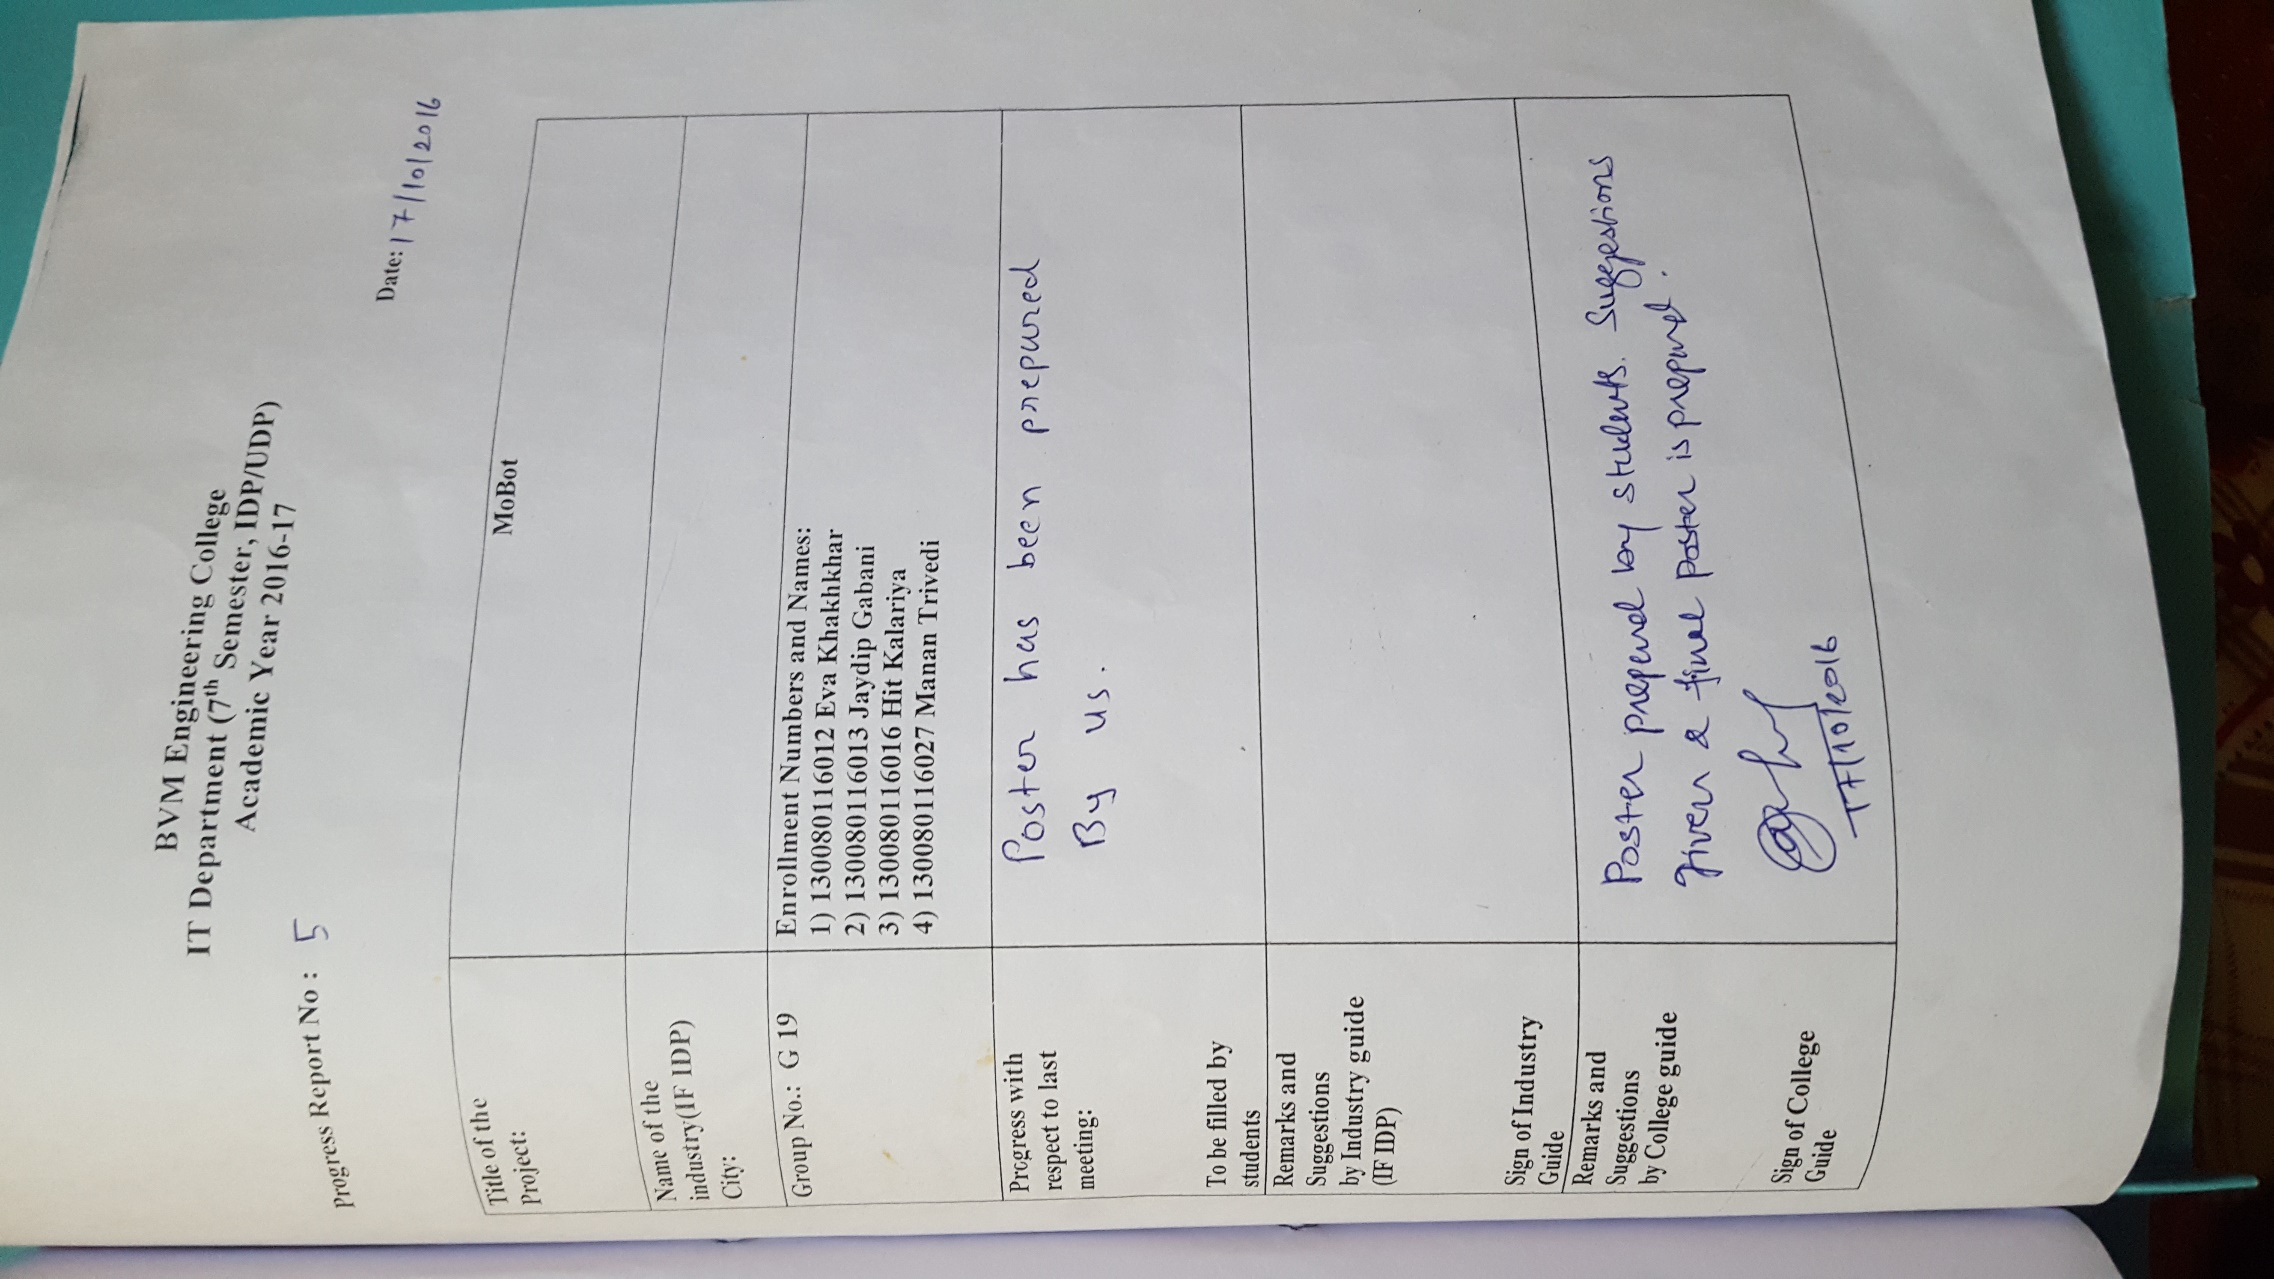 BVM Engineering College
IT Department (7th Semester, IDP/UDP)
Academic Year 2016-17
Progress Report No : 5
Date: 17/10/2016
Title of the
Project:
MoBot
Name of the
industry(IF IDP)
City:
Group No.: G 19
Enrollment Numbers and Names:
1) 130080116012 Eva Khakhkhar
2) 130080116013 Jaydip Gabani
3) 130080116016 Hit Kalariya
4) 130080116027 Manan Trivedi
Progress with
respect to last
meeting:
To be filled by
students
Poster has been prepared
By us.
Remarks and
Suggestions
by Industry guide
(IF IDP)
Sign of Industry
Guide
Remarks and
Suggestions
by College guide
Sign of College
Guide
Poster prepared by students. Suggestions
given & final poster is prepared.
17/10/2016